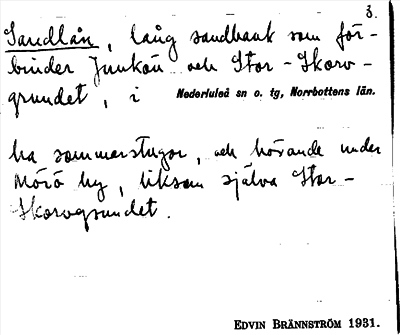 3.
Sandlån, lång sandbank som för-
binder Junkön och Stor-Skorv-
grundet, i Nederluleå sn o. tg, Norrbottens län.
ha sommarstugor, och hörande under
Mörö by, liksom själva Stor-
Skorvgrundet.
EDVIN BRÄNNSTRÖM 1931.